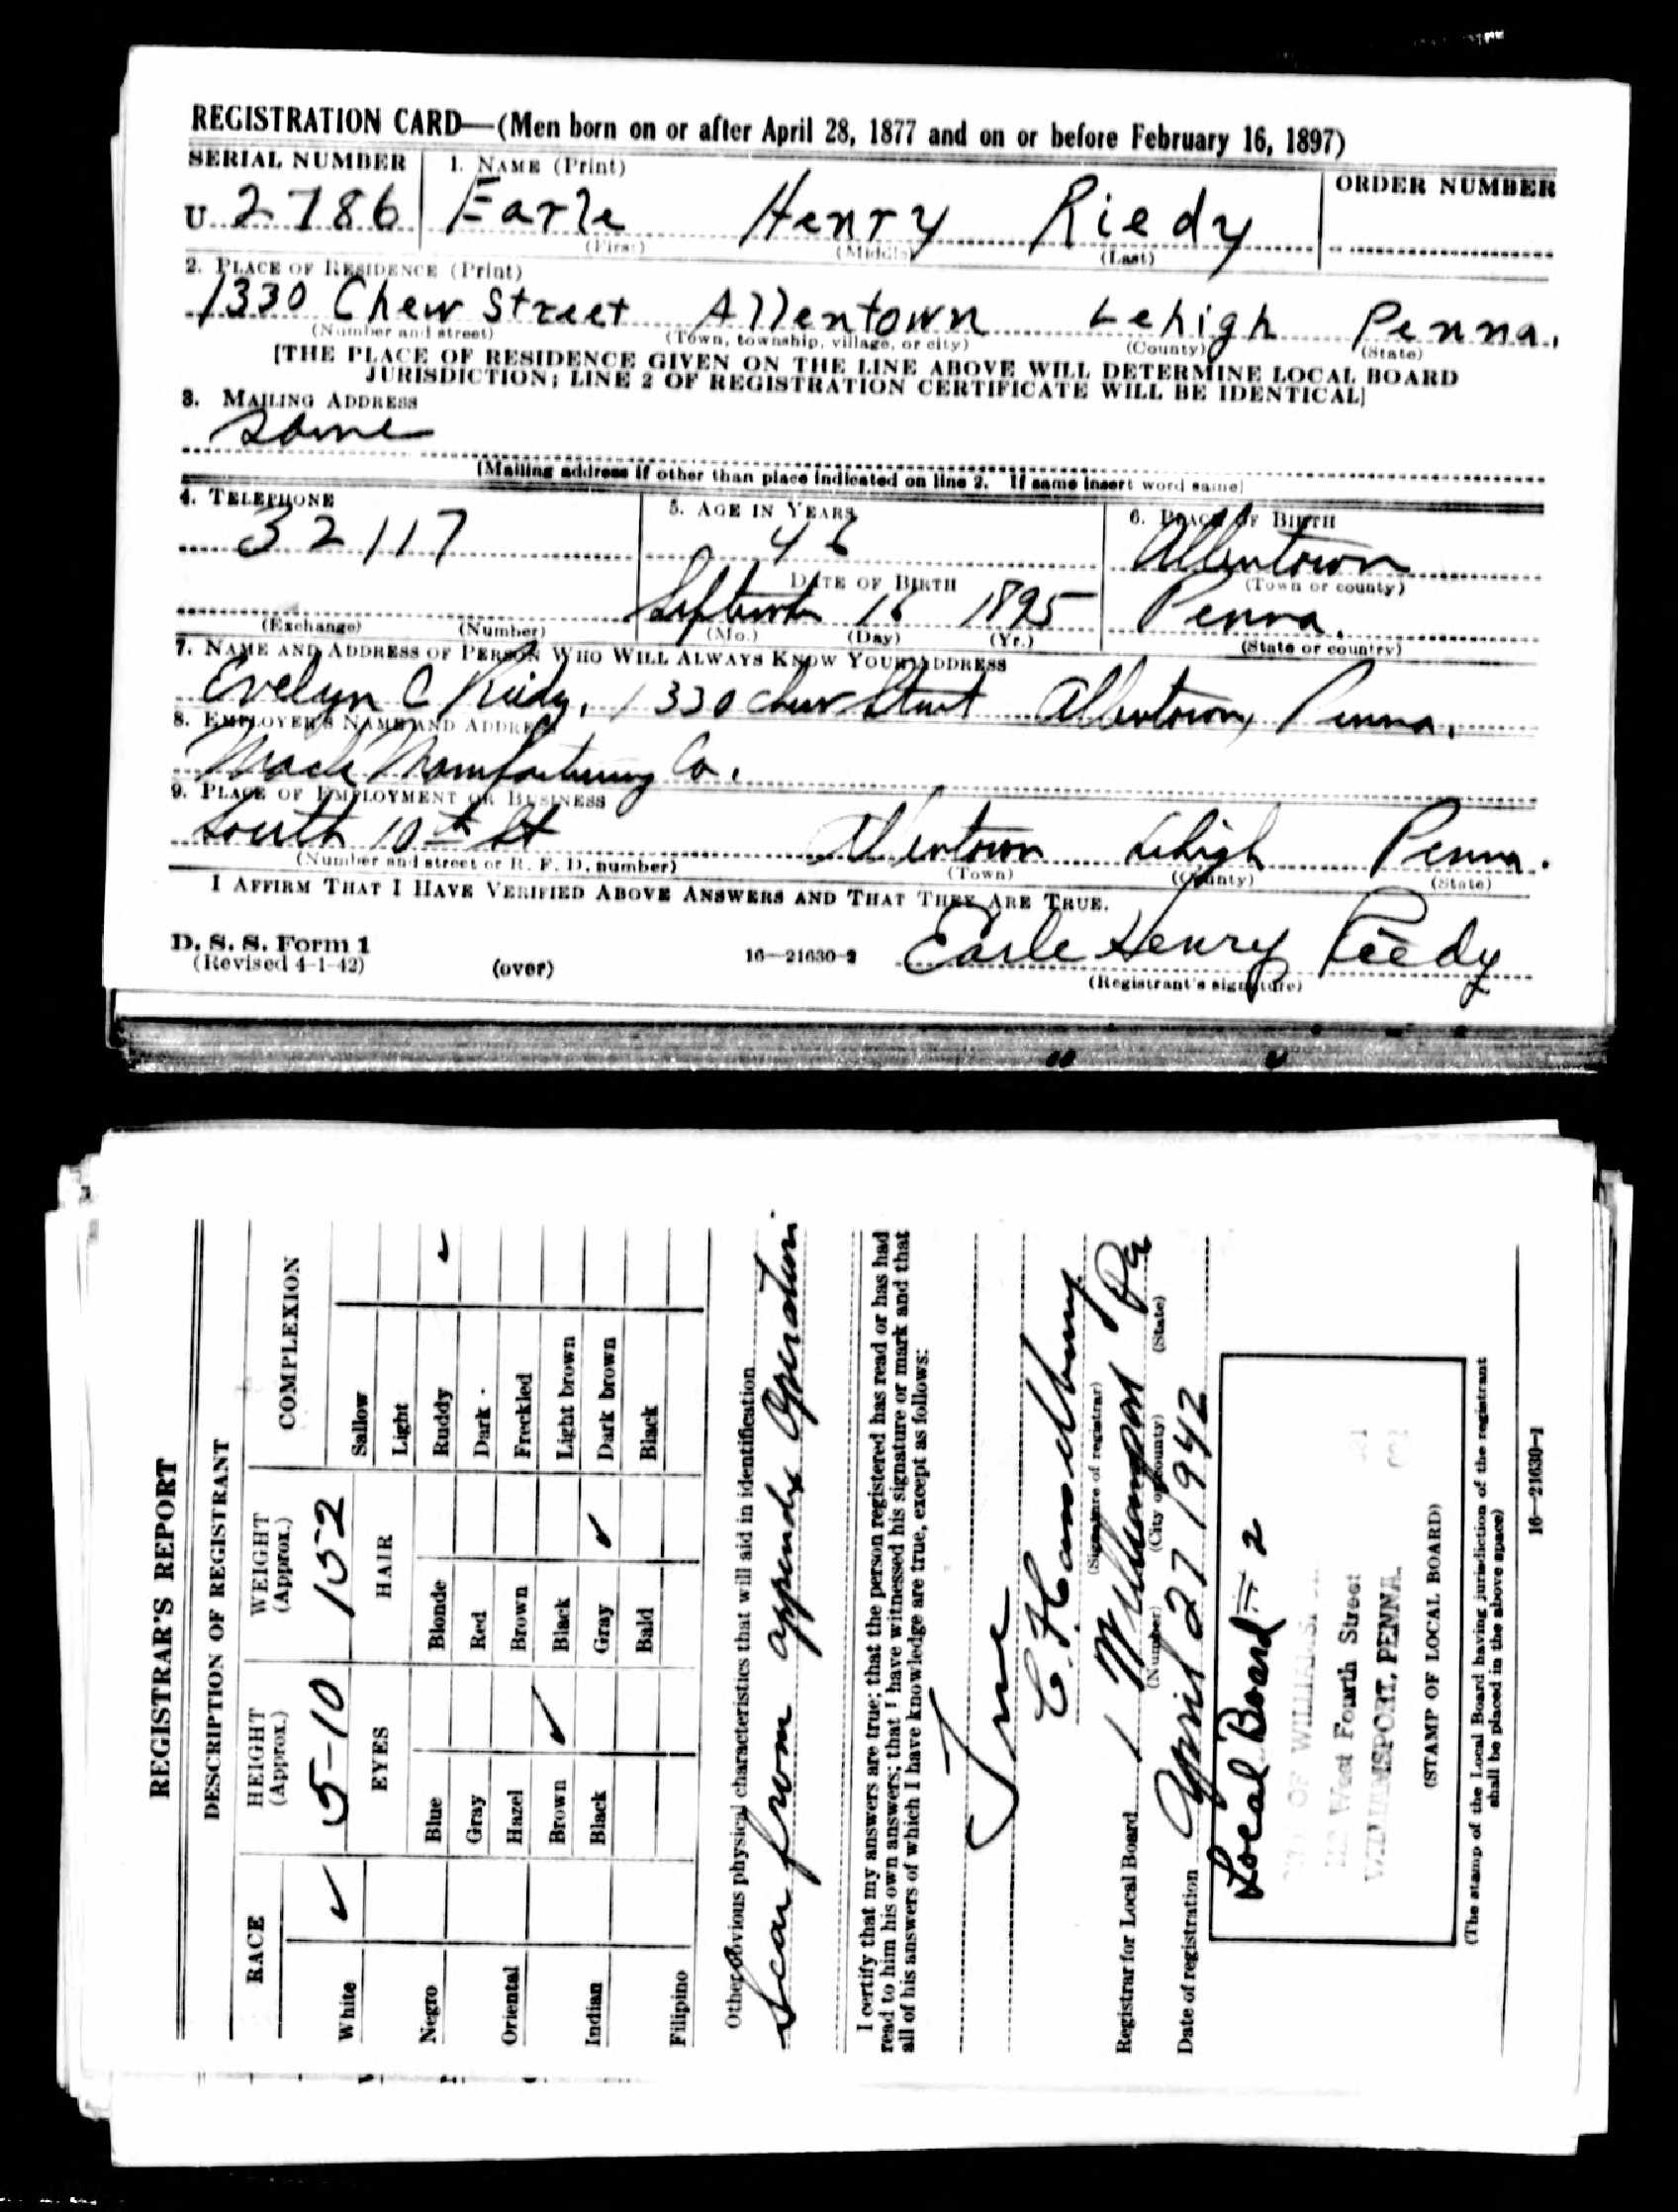 REGISTRATION CARD—(Men born on or after April 28, 1877 and on or before February 16, 1897)
SERIAL NUMBER 1. NAME (Print) ORDER NUMBER
U 2786 Earle Henry Riedy
(First) (Middle) (Last)
2. PLACE OF RESIDENCE (Print)
1330 Chew Street Allentown Lehigh Penna.
(Number and street) (Town, township, village, or city) (County) (State)
[THE PLACE OF RESIDENCE GIVEN ON THE LINE ABOVE WILL DETERMINE LOCAL BOARD
JURISDICTION; LINE 2 OF REGISTRATION CERTIFICATE WILL BE IDENTICAL]
3. MAILING ADDRESS
Same
[Mailing address if other than place indicated on line 2. If same insert word same]
4. TELEPHONE 5. AGE IN YEARS 6. PLACE OF BIRTH
32117 46 Allentown
DATE OF BIRTH (Town or county)
September 16 1895 Penna.
(Exchange) (Number) (Mo.) (Day) (Yr.) (State or country)
7. NAME AND ADDRESS OF PERSON WHO WILL ALWAYS KNOW YOUR ADDRESS
Evelyn C Riedy, 1330 Chew Street Allentown, Penna.
8. EMPLOYER'S NAME AND ADDRESS
Mack Manufacturing Co.
9. PLACE OF EMPLOYMENT OR BUSINESS
South 10th St Allentown Lehigh Penna.
(Number and street or R. F. D. number) (Town) (County) (State)
I AFFIRM THAT I HAVE VERIFIED ABOVE ANSWERS AND THAT THEY ARE TRUE.
D. S. S. Form 1
(Revised 4-1-42) (over) 16—21630-2 Earle Henry Riedy
(Registrant's signature)
REGISTRAR'S REPORT
DESCRIPTION OF REGISTRANT
RACE HEIGHT (Approx.) WEIGHT (Approx.) COMPLEXION
White ✓ 5-10 152 Sallow
EYES HAIR Light
Negro Blue Blonde Ruddy ✓
Gray Red Dark
Oriental Hazel Brown Freckled
Brown ✓ Black Light brown
Indian Black Gray ✓ Dark brown
Filipino Bald Black
Other obvious physical characteristics that will aid in identification
Scar from appendix Operation
I certify that my answers are true; that the person registered has read or has had
read to him his own answers; that I have witnessed his signature or mark and that
all of his answers of which I have knowledge are true, except as follows:
True
(Signature of registrar)
Registrar for Local Board 1 Williamsport Pa
(Number) (City or county) (State)
Date of registration April 27 1942
Local Board # 2
OF
West Fourth Street
WILLIAMSPORT, PENNA.
(STAMP OF LOCAL BOARD)
(The stamp of the Local Board having jurisdiction of the registrant
shall be placed in the above space)
16—21630-1